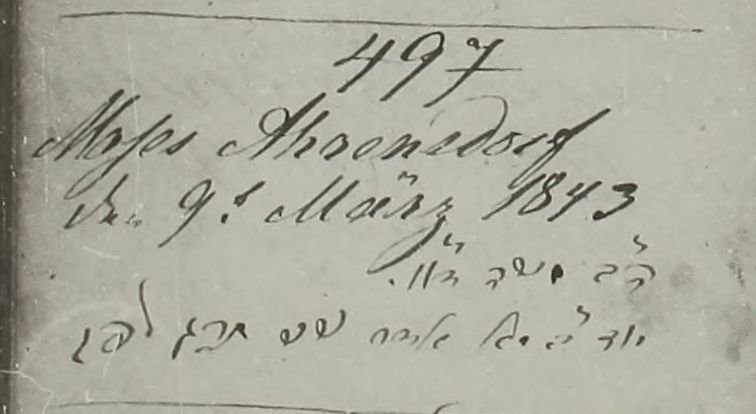 497
Moses Ahrensdorf
den 9t März 1843
משה
יום ה' אדר שני תרג לפק